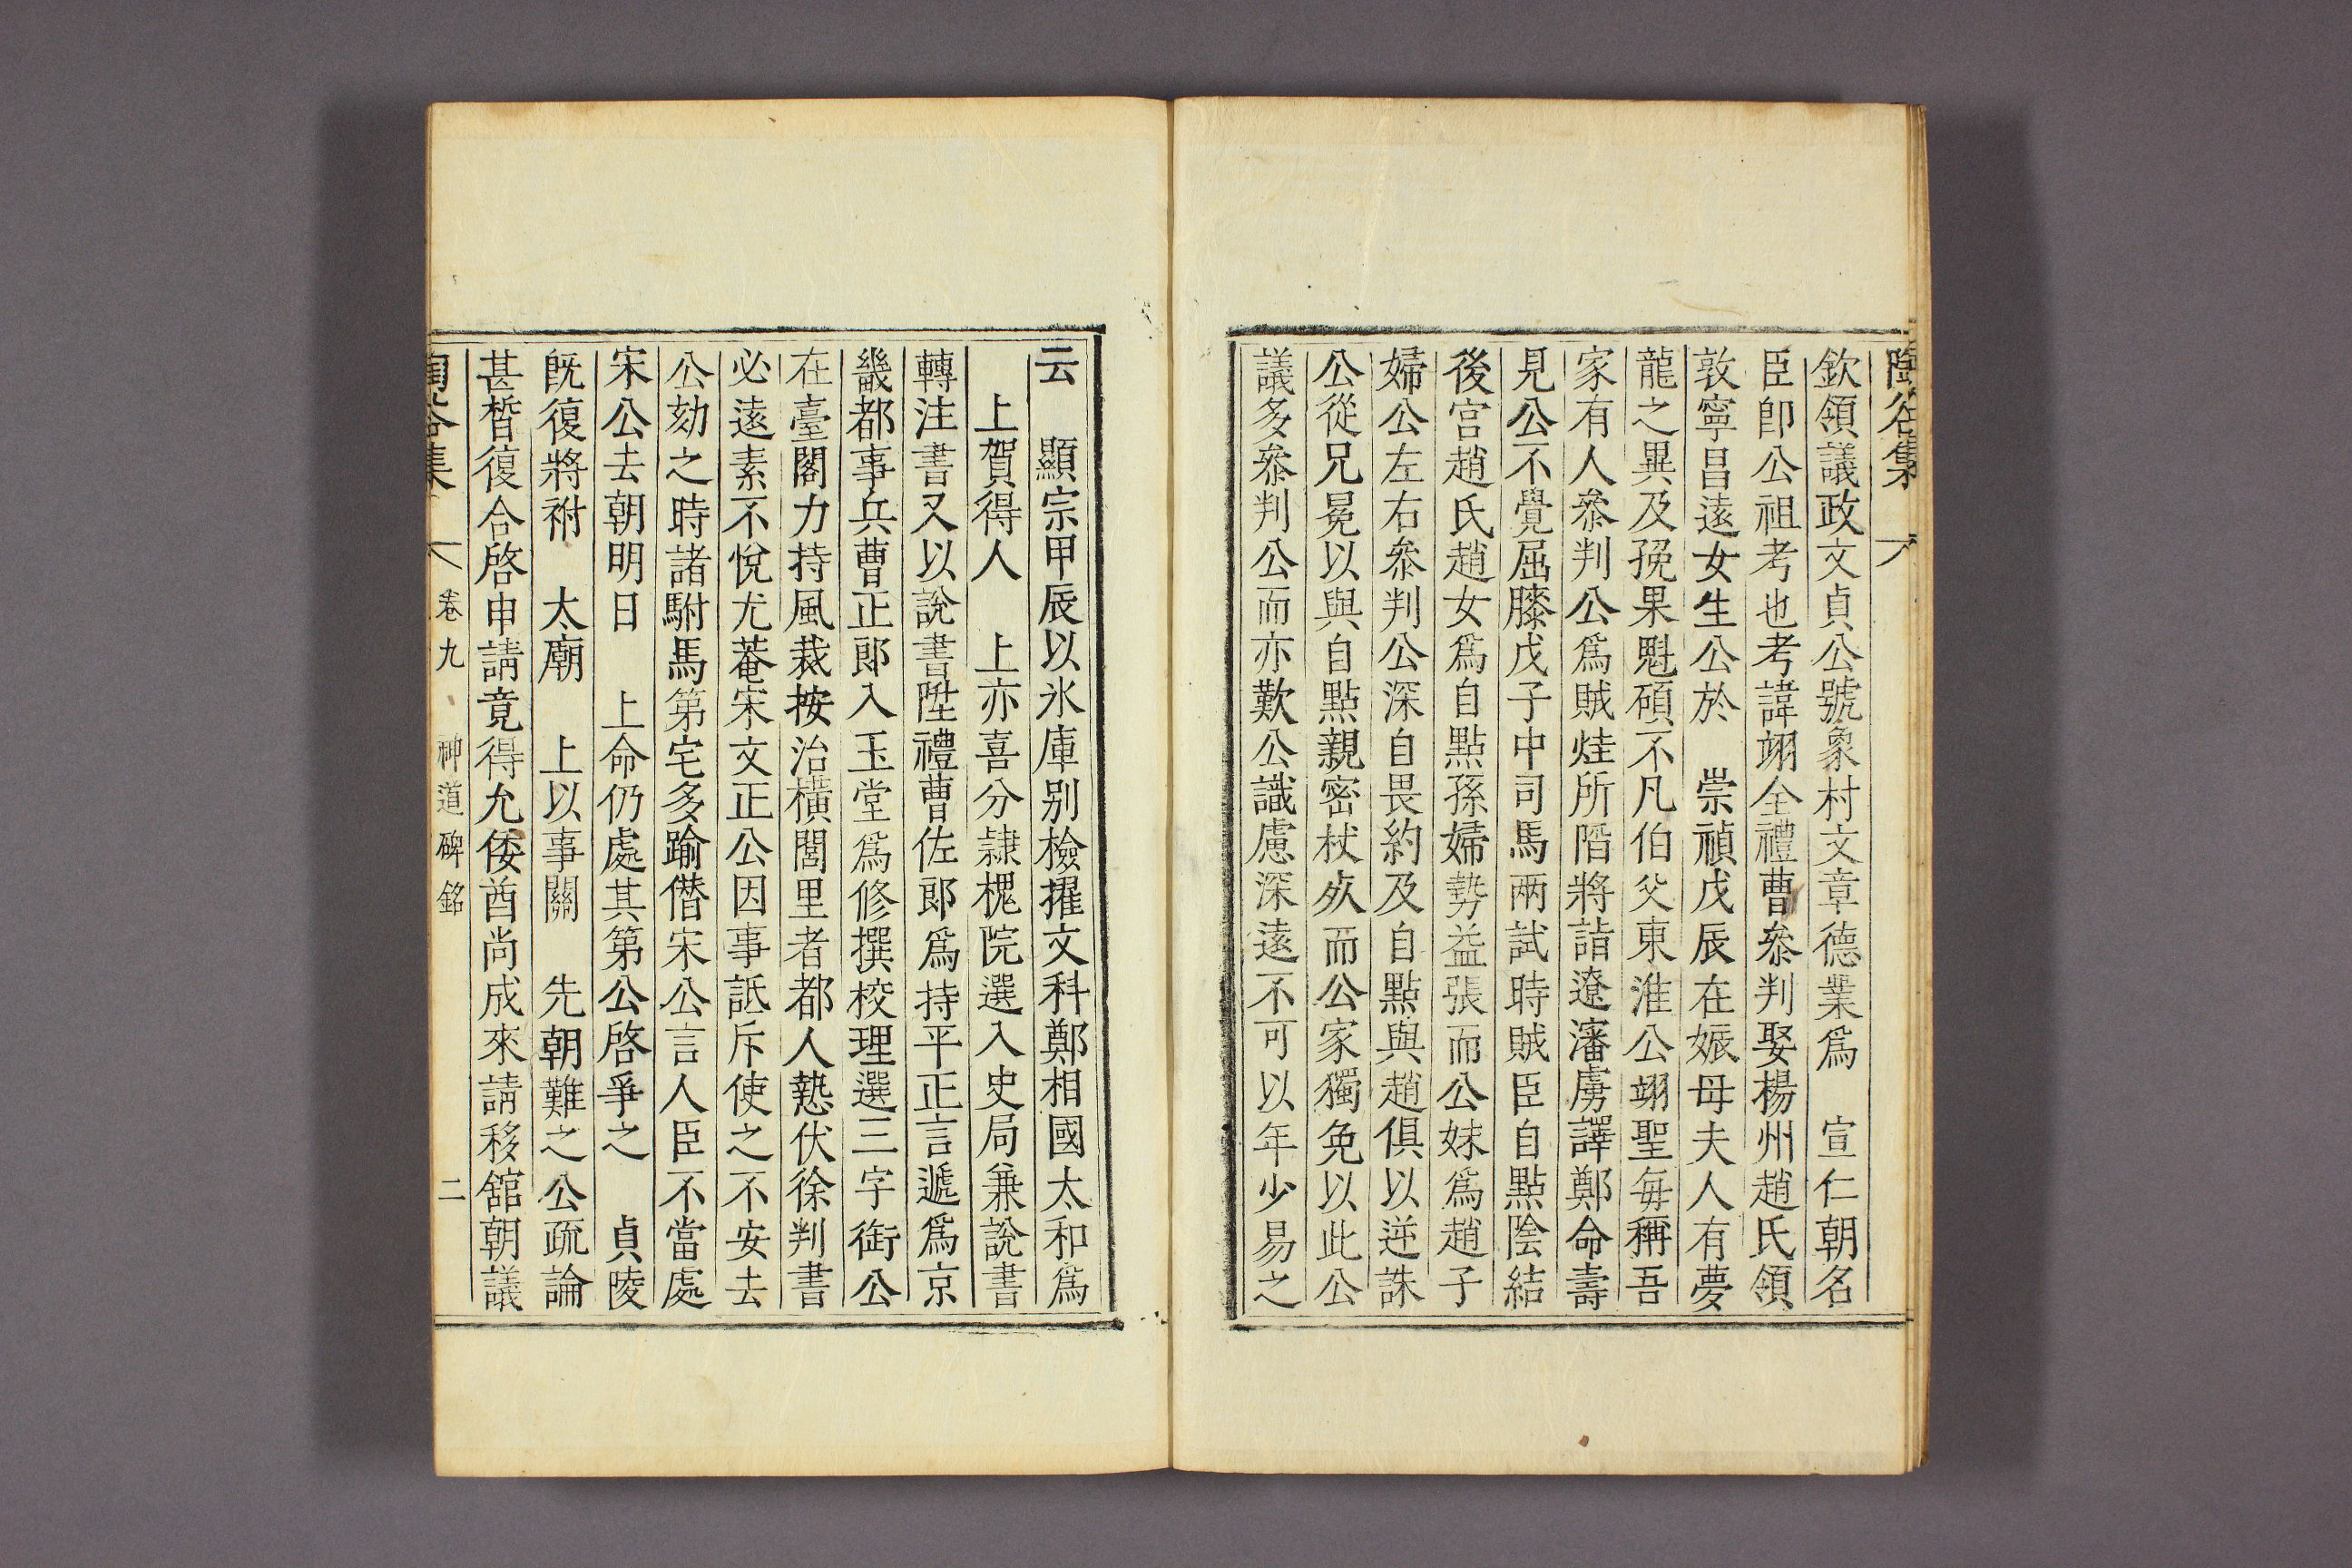 陶谷集
欽領議政文貞公號象村文章德業爲　宣仁朝名
臣卽公祖考也考諱翊全禮曹叅判娶楊州趙氏領
敦寧昌遠女生公於　崇禎戊辰在娠母夫人有夢
龍之異及㝃果魁碩不凡伯父東淮公翊聖每稱吾
家有人叅判公爲賊烓所䧟將詣遼瀋虜譯鄭命壽
見公不覺屈膝戊子中司馬兩試時賊臣自點陰結
後宮趙氏趙女爲自點孫婦勢益張而公妹爲趙子
婦公左右叅判公深自畏約及自點與趙俱以逆誅
公從兄冕以與自點親密杖死而公家獨免以此公
議多叅判公而亦歎公識慮深遠不可以年少易之
云　顯宗甲辰以氷庫別檢擢文科鄭相國太和爲
上賀得人　上亦喜分隷槐院選入史局兼說書
轉注書又以說書陞禮曹佐郞爲持平正言遞爲京
畿都事兵曹正郞入玉堂爲修撰校理選三字銜公
在臺閣力持風裁按治橫閭里者都人慹伏徐判書
必遠素不悅尤菴宋文正公因事詆斥使之不安去
公劾之時諸駙馬第宅多踰僭宋公言人臣不當處
宋公去朝明日　上命仍處其第公啓爭之　貞陵
旣復將祔　太廟　上以事關　先朝難之公疏論
甚晳復合啓申請竟得允倭酋尙成來請移舘朝議
陶谷集　卷九　神道碑銘　二